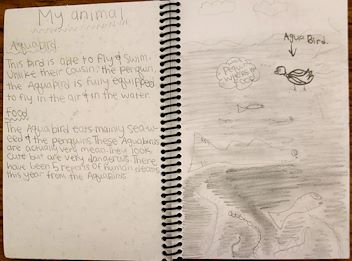 My animal
Aquabird.
This bird is able to fly & Swim.
Unlike their cousin, the penguin,
the AquaBird is fully equipped
to fly in the air & in the water.
Food
The Aquabird eats mainly sea-w-
eed & the penguins. These Aquabirds
are actually very mean. They look
cute but are very dangerous. There
have been 5 reports of human
this year from the AquaBirds.
Aqua Bird.